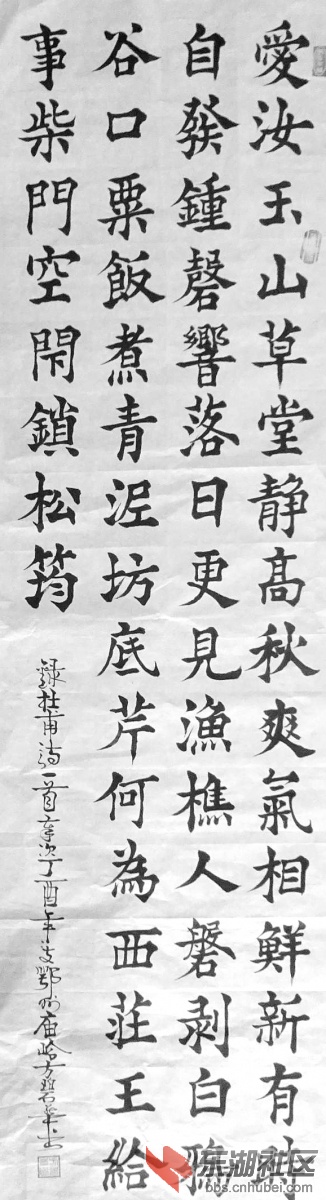 愛汝玉山草堂静高秋爽氣相鮮新有時
自發鍾磬響落日更見漁樵人磐剥白鴉
谷口粟飯煮青泥坊底芹何為西莊王給
事柴門空閇鎖松筠
錄杜甫詩一首歲次丁酉年鄂州庙岭方
东湖社区
bbs.cnhubei.com